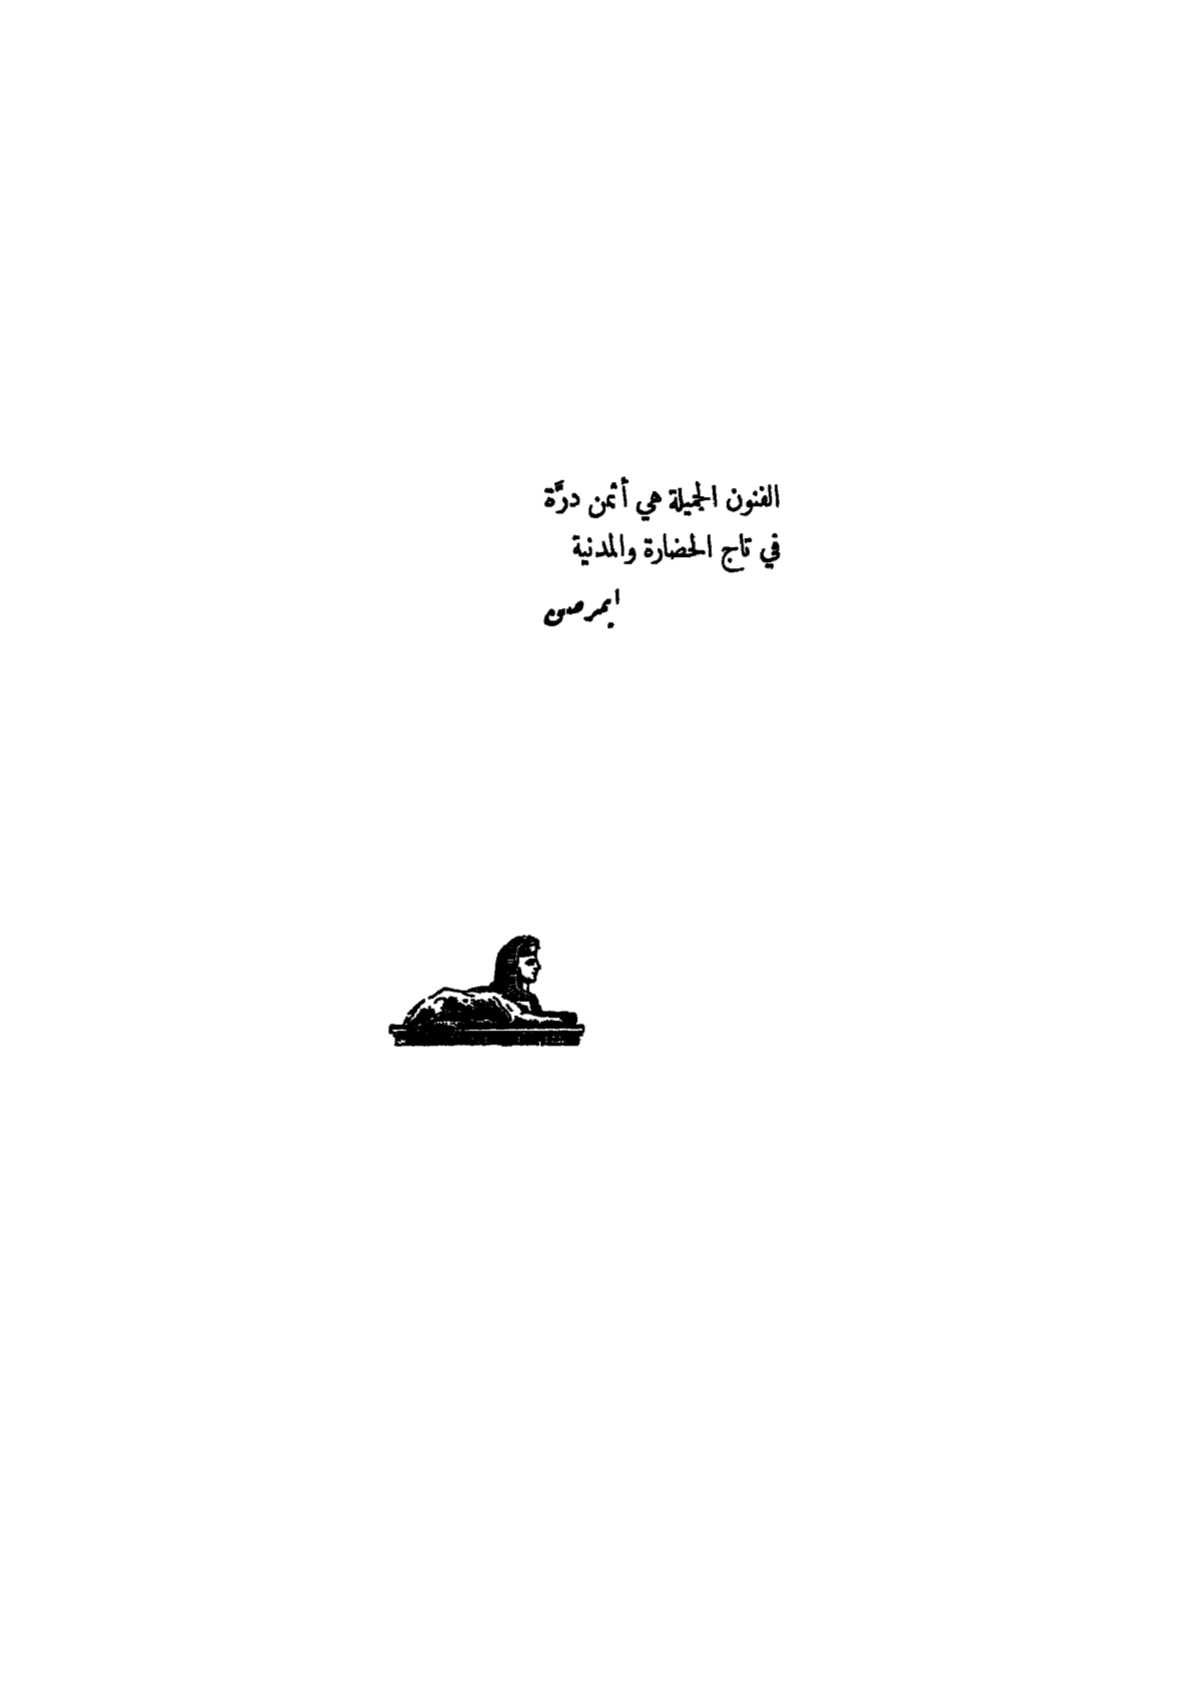 الفنون الجميلة هي أثمن درَّة
في تاج الحضارة والمدنية
ايمرصون